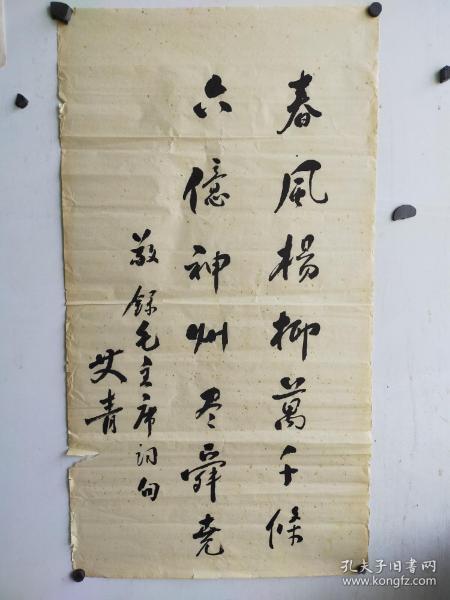 春風楊柳萬千條
六億神州尽舜堯
敬錄毛主席词句
艾青
孔夫子旧书网
www.kongfz.com